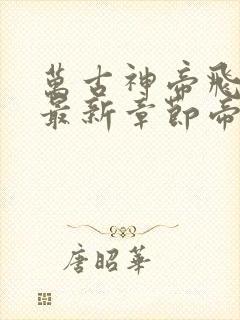 萬古神帝飛
最新章節帝
唐昭華